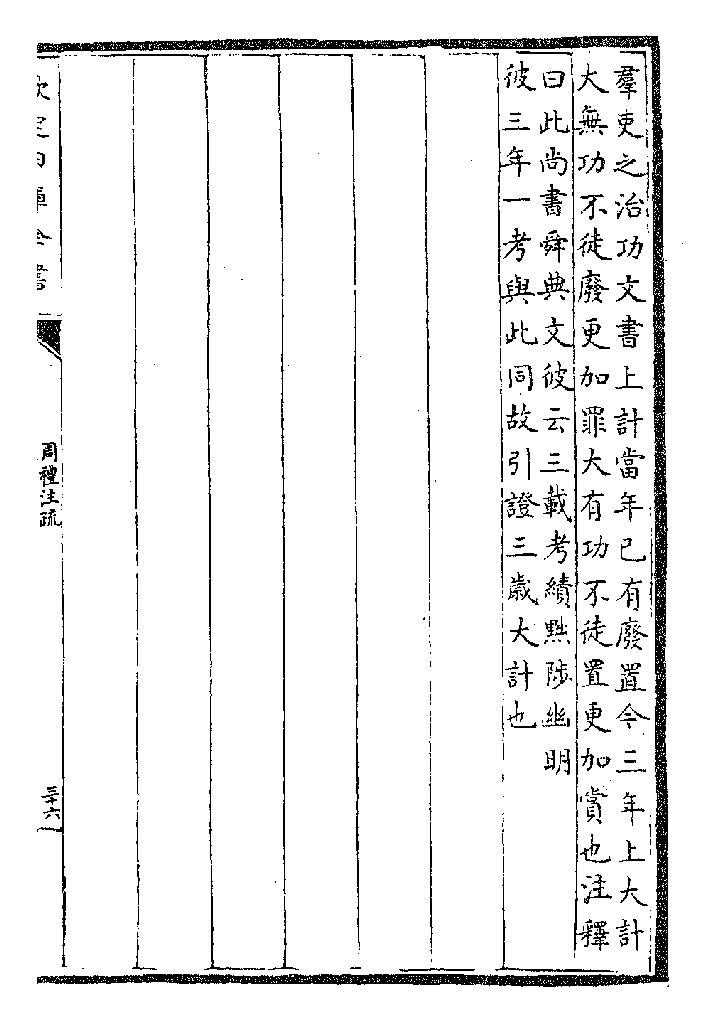 羣吏之治功文書上計當年已有廢置今三年上大計
大無功不徒廢更加罪大有功不徒置更加賞也注釋
曰此尚書舜典文彼云三載考績黜陟幽明
彼三年一考與此同故引證三歲大計也
欽定四庫全書
周禮注疏
三十六